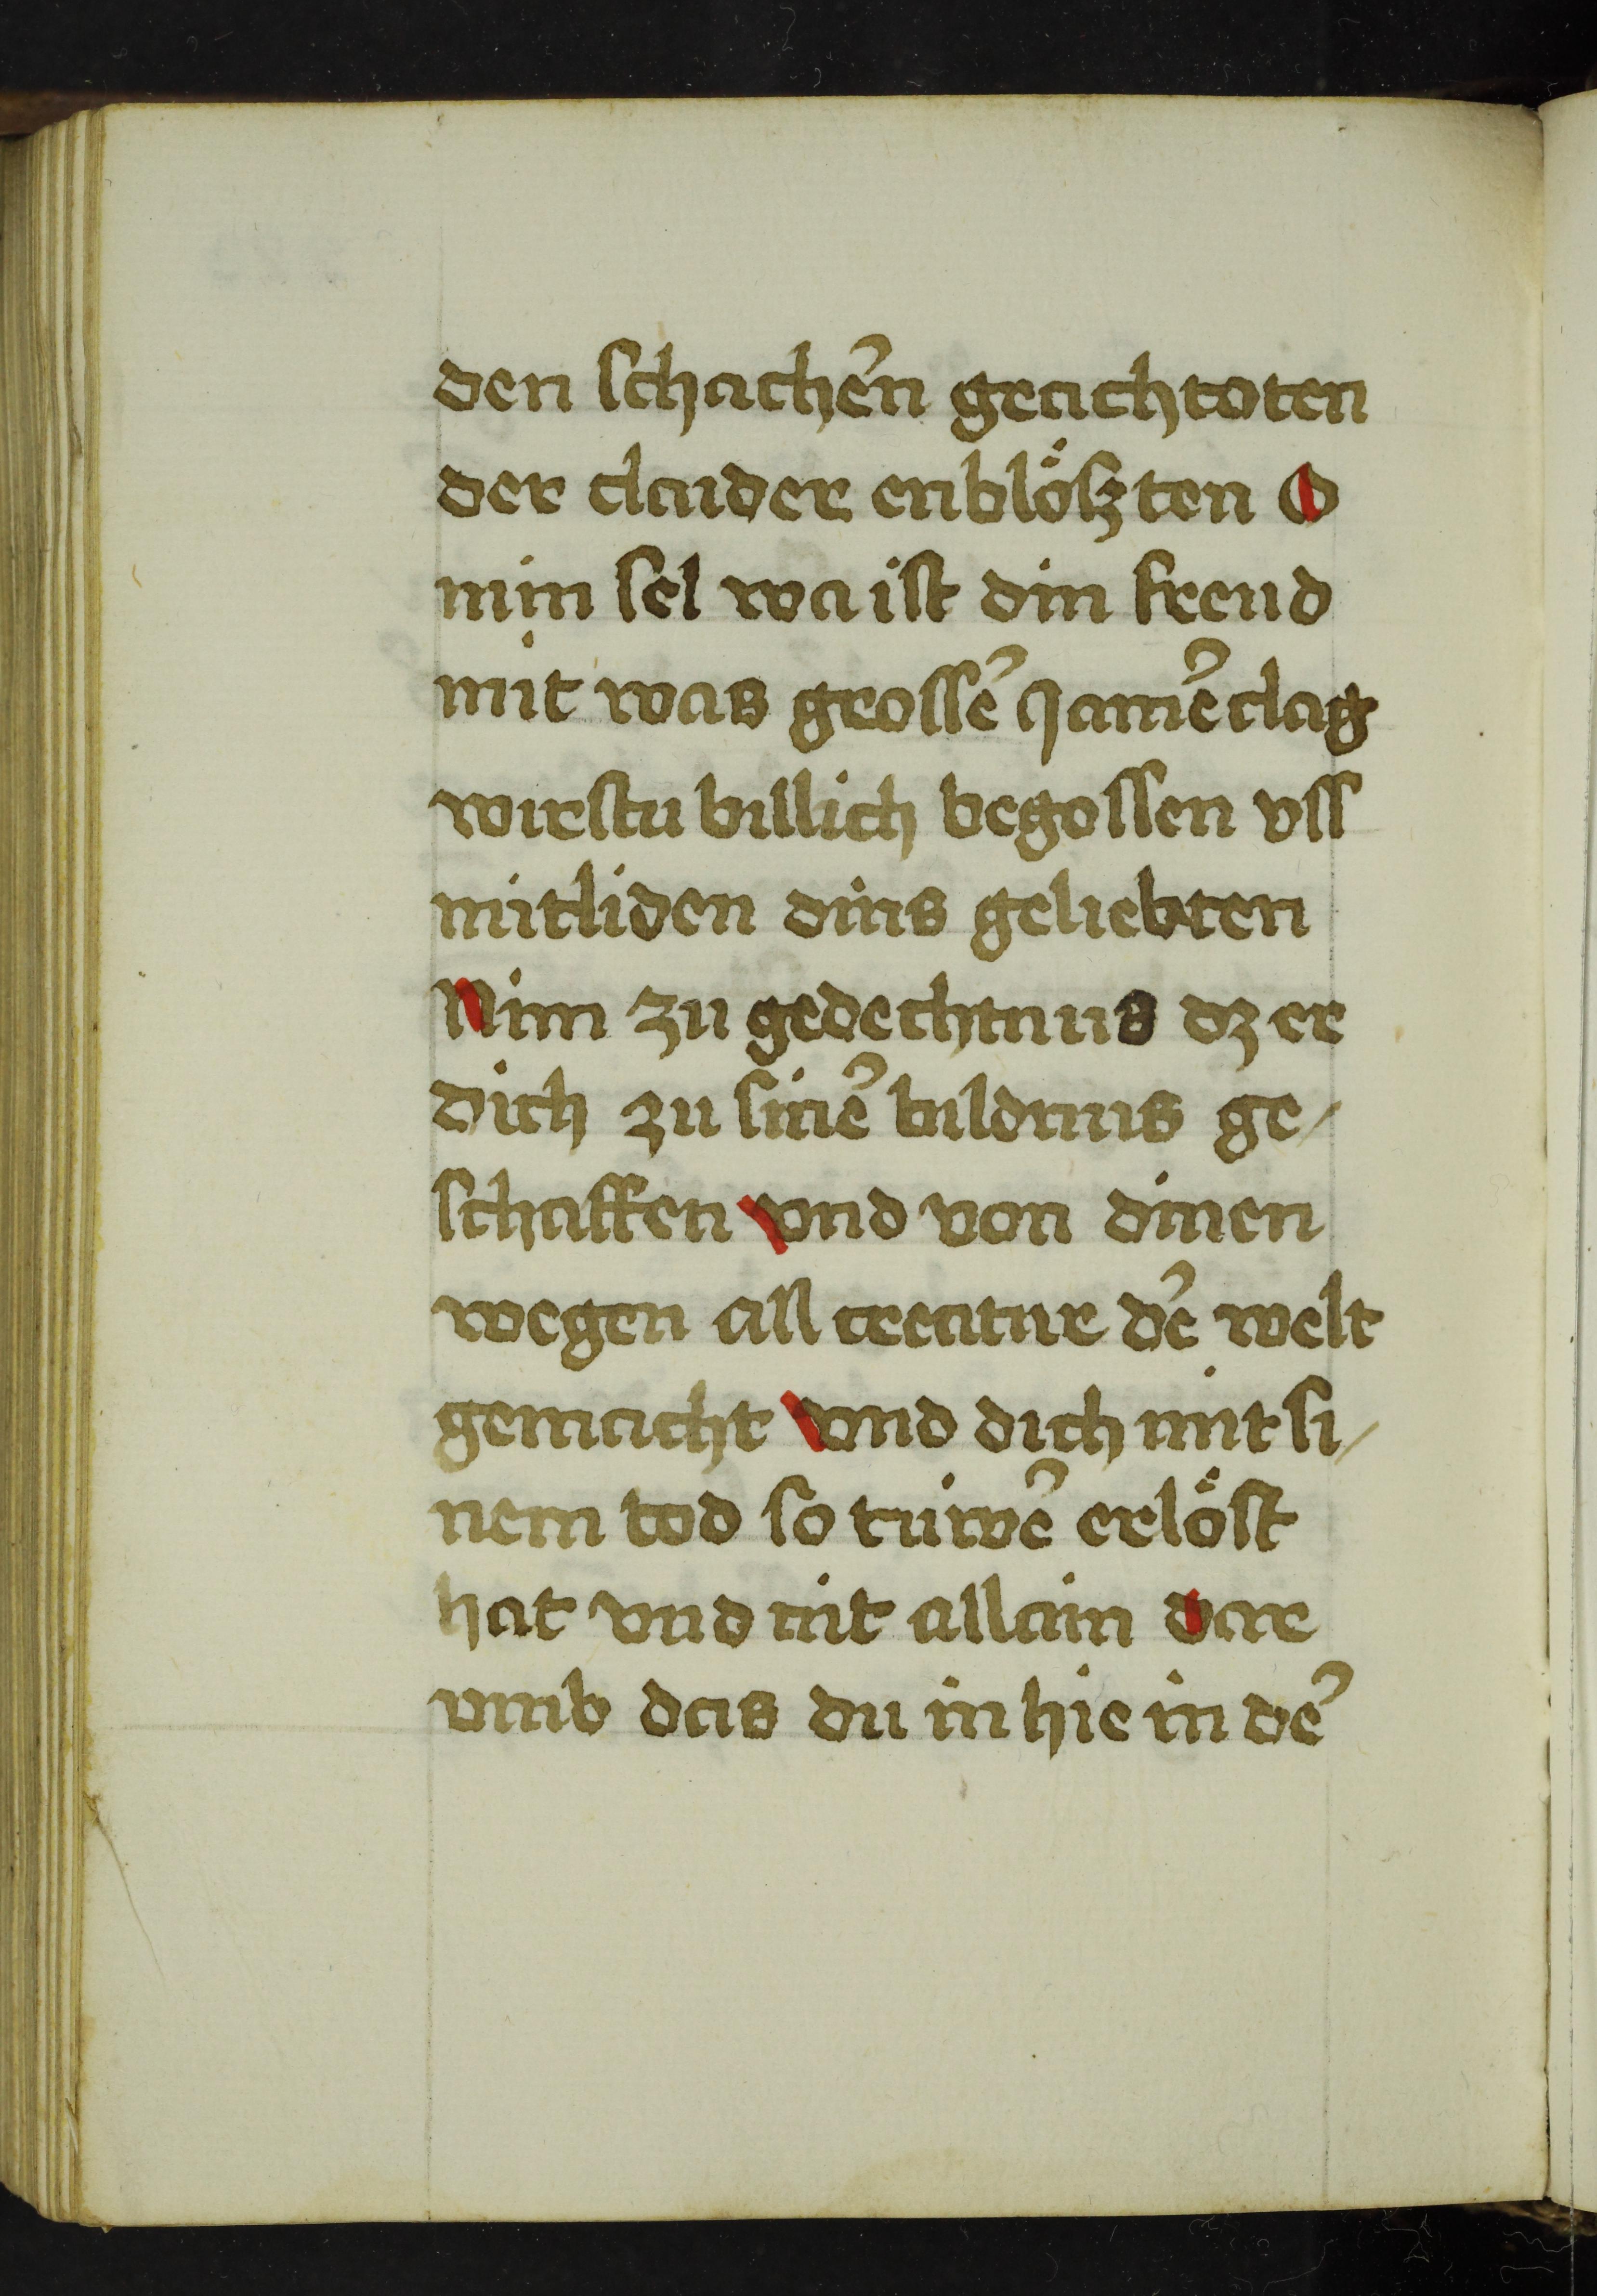 den schachen̄ geachtoten
der claider enblöſzten O
min ſel wa iſt din freud
mit was groſſē Jamēclag
wirſtu billich begoſſen vſſ
mitliden dins geliebten
Nim zu gedechtnus dz er
dich zu ſinē bildnus ge/
ſchaffen vnd von dinen
wegen all creatur dē welt
gemacht vnd dich mit ſi/
nem tod ſo túwē erlöſt
hat vnd nit allain dar
vmb das du in hie in dē